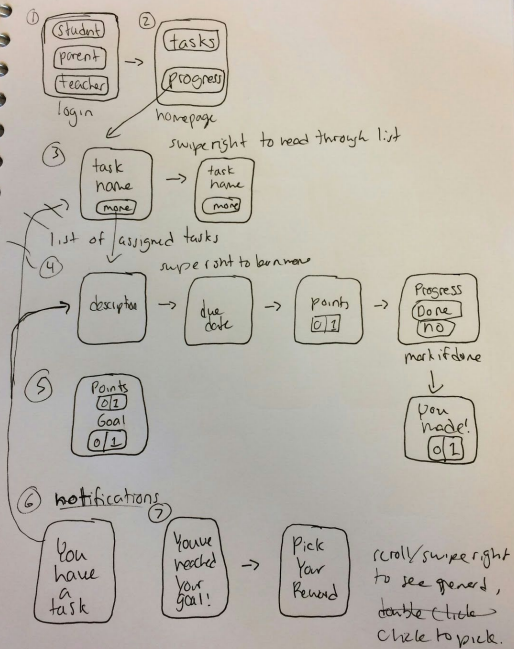 ① ②
student
parent
teacher
login
tasks
progress
homepage
swipe right to read through list
③
task
name
more
task
name
more
list of assigned tasks
④
description
due
date
points
0 1
Progress
Done
no
mark if done
⑤
Points
0 1
Goal
0 1
you
made!
0 1
⑥ notifications
⑦
You
have
a
task
You've
reached
your
goal!
Pick
Your
Reward
scroll/swipe right
to see
double click
Click to pick.